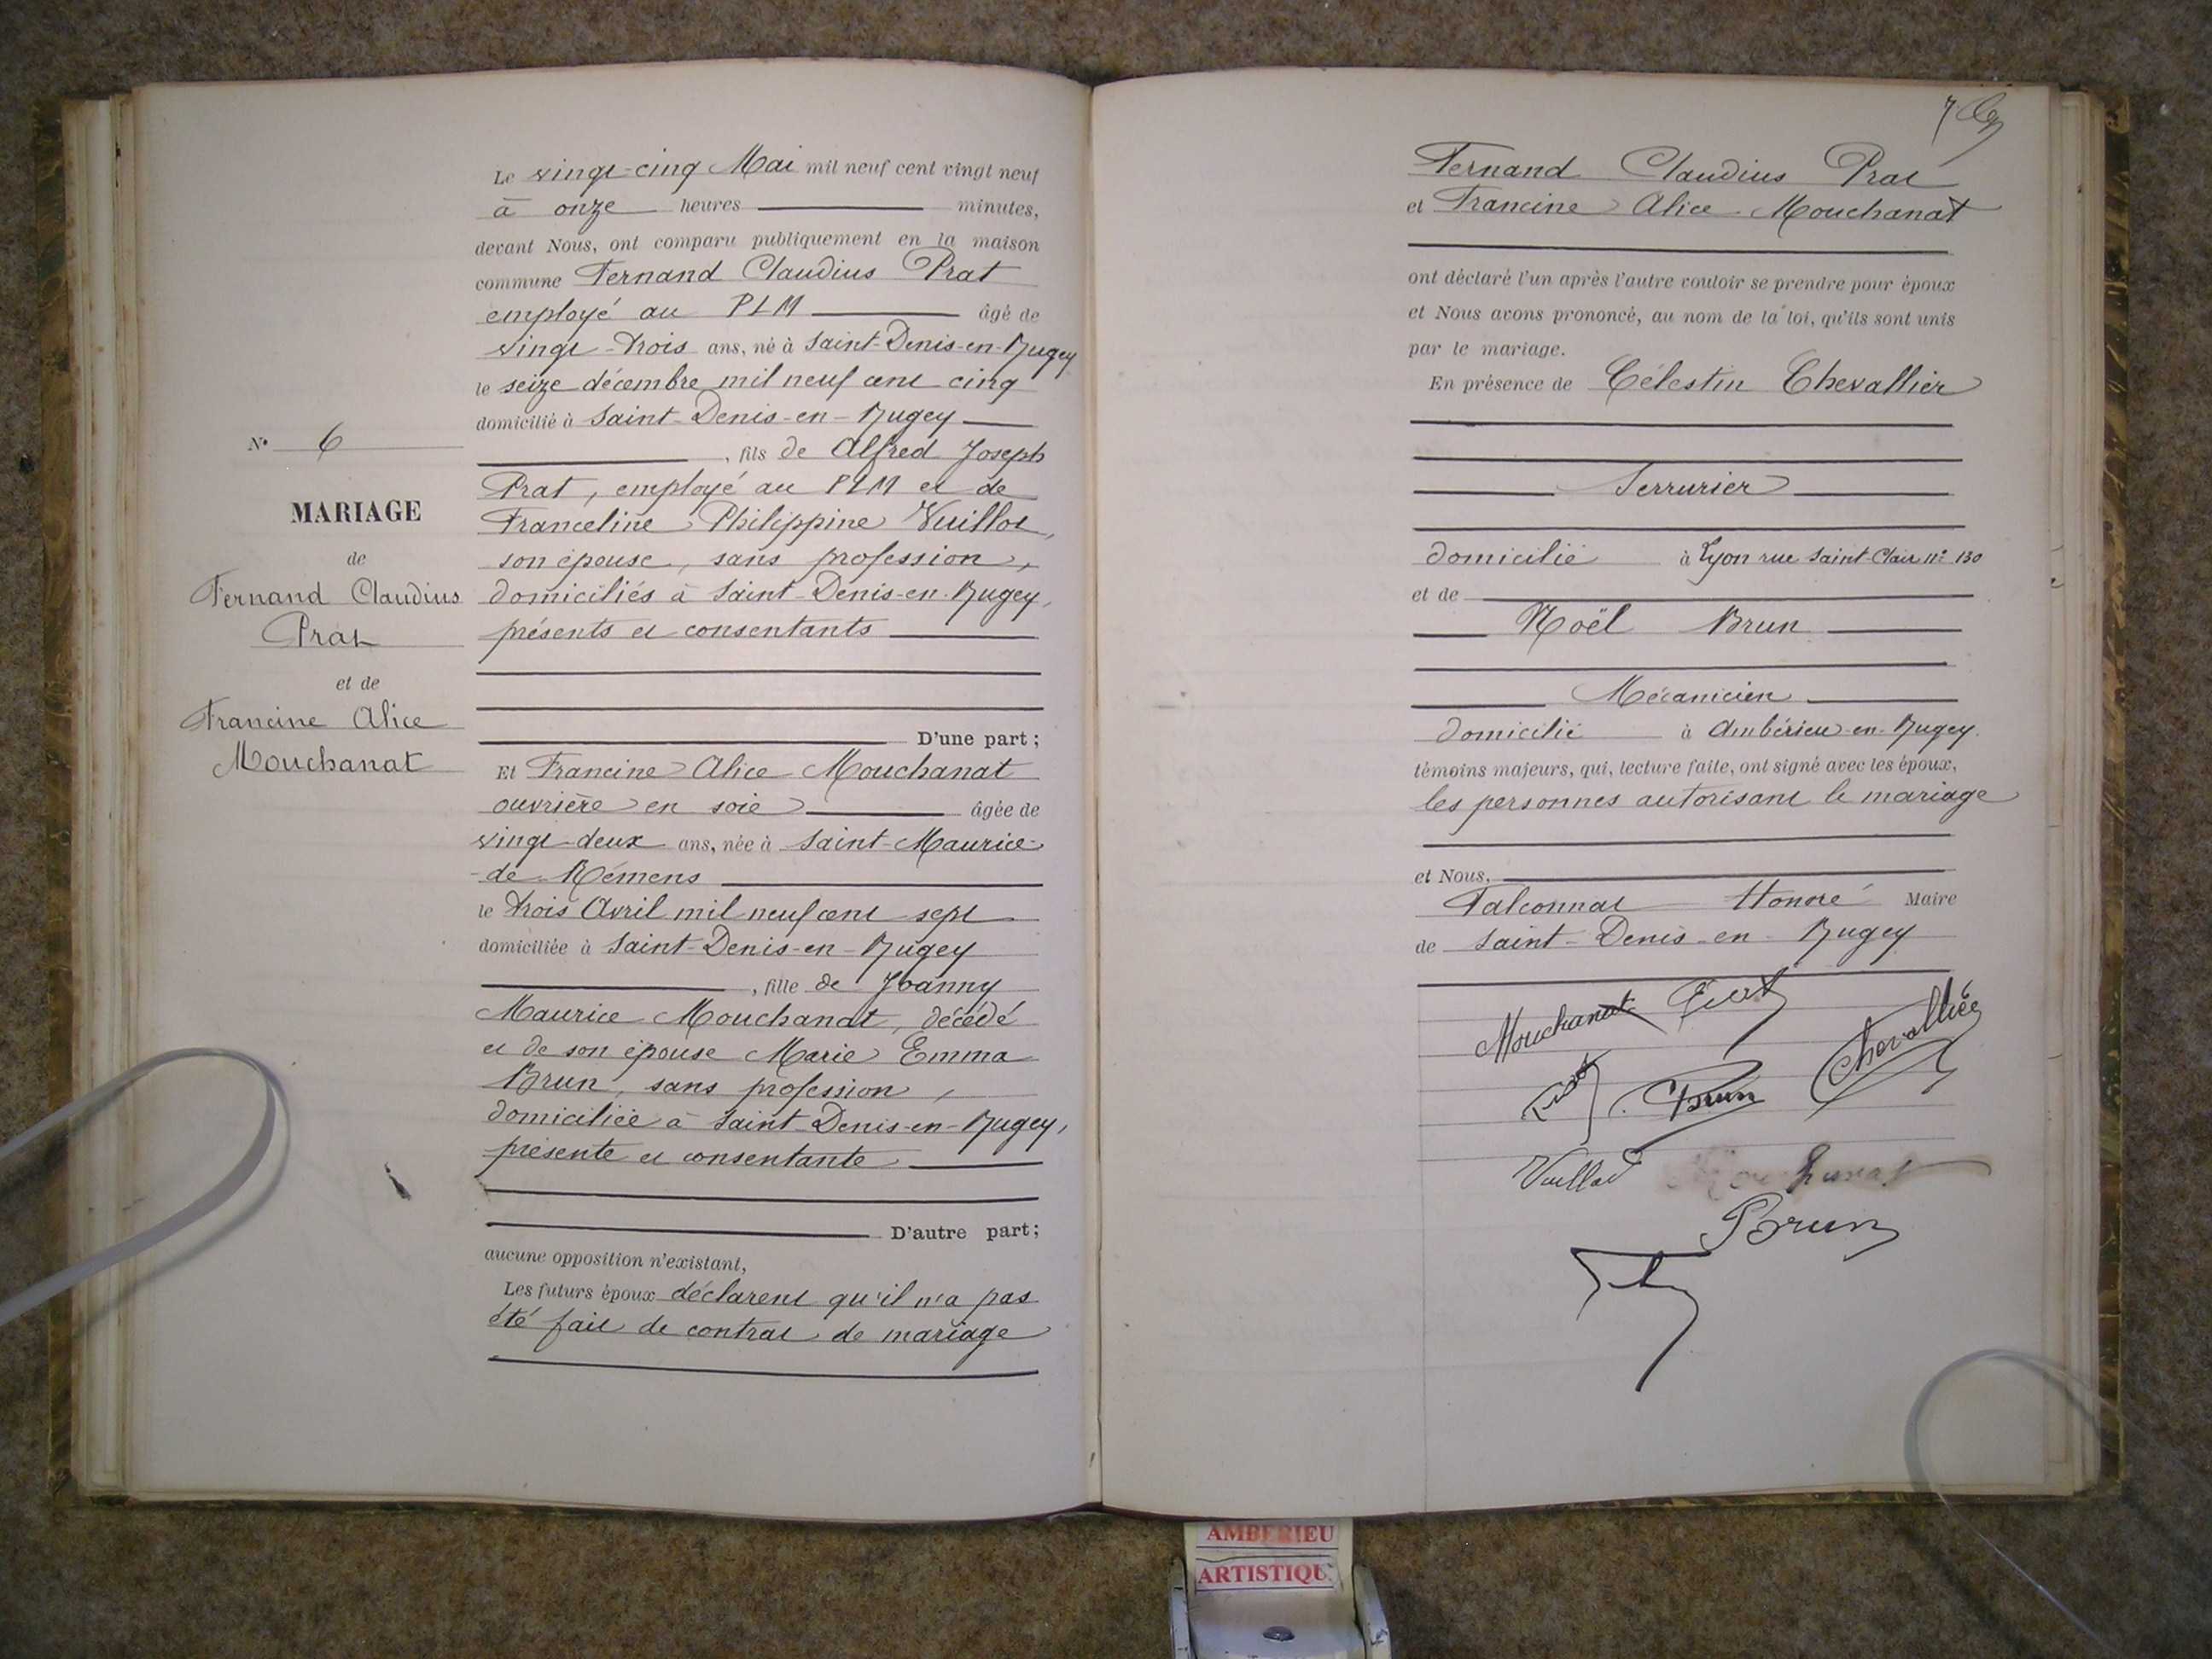 N° 6
MARIAGE
de
Fernand Claudius
Prat
et de
Francine Alice
Mouchanat
Le vingt-cinq Mai mil neuf cent vingt neuf
à onze heures minutes,
devant Nous, ont comparu publiquement en la maison
commune Fernand Claudius Prat
employé au PLM âgé de
vingt-trois ans, né à Saint-Denis-en-Bugey
le seize décembre mil neuf cent cinq
domicilié à Saint-Denis-en-Bugey
, fils de Alfred Joseph
Prat, employé au PLM et de
Franceline Philippine Vuillot,
son épouse, sans profession,
domiciliés à Saint-Denis-en-Bugey,
présents et consentants
D'une part;
Et Francine Alice Mouchanat
ouvrière en soie âgée de
vingt-deux ans, née à Saint-Maurice-
-de-Rémens
le trois Avril mil neuf cent sept
domiciliée à Saint-Denis-en-Bugey
, fille de Joanny
Maurice Mouchanat, décédé
et de son épouse Marie Emma
Brun, sans profession,
domiciliée à Saint-Denis-en-Bugey,
présente et consentante
D'autre part;
aucune opposition n'existant,
Les futurs époux déclarent qu'il n'a pas
été fait de contrat de mariage
7
Fernand Claudius Prat
et Francine Alice Mouchanat
ont déclaré l'un après l'autre vouloir se prendre pour époux
et Nous avons prononcé, au nom de la loi, qu'ils sont unis
par le mariage.
En présence de Célestin Chevallier
Serrurier
domicilié à Lyon rue Saint-Clair n° 130
et de
Noël Brun
Mécanicien
domicilié à Ambérieu-en-Bugey.
témoins majeurs, qui, lecture faite, ont signé avec les époux,
les personnes autorisant le mariage
et Nous,
Falconnat Honoré Maire
de Saint-Denis-en-Bugey
Mouchanat Prat
Chevallier
Prat Brun
Vuillot Mouchanat
Brun
AMBERIEU
ARTISTIQU